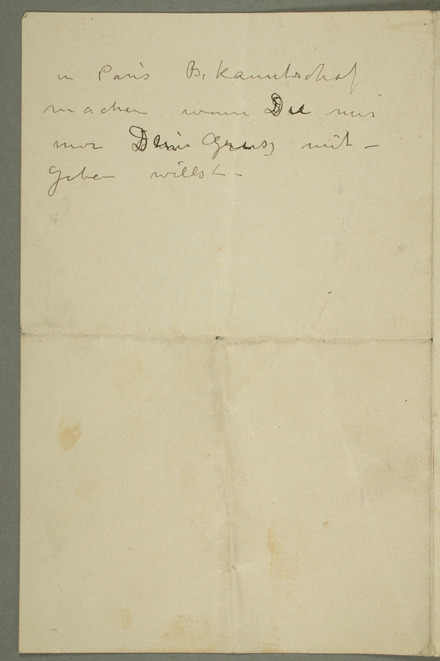 in Paris Bekanntschaf
machen wenn Du mir
nur Dein Gruss mit –
geben willst –